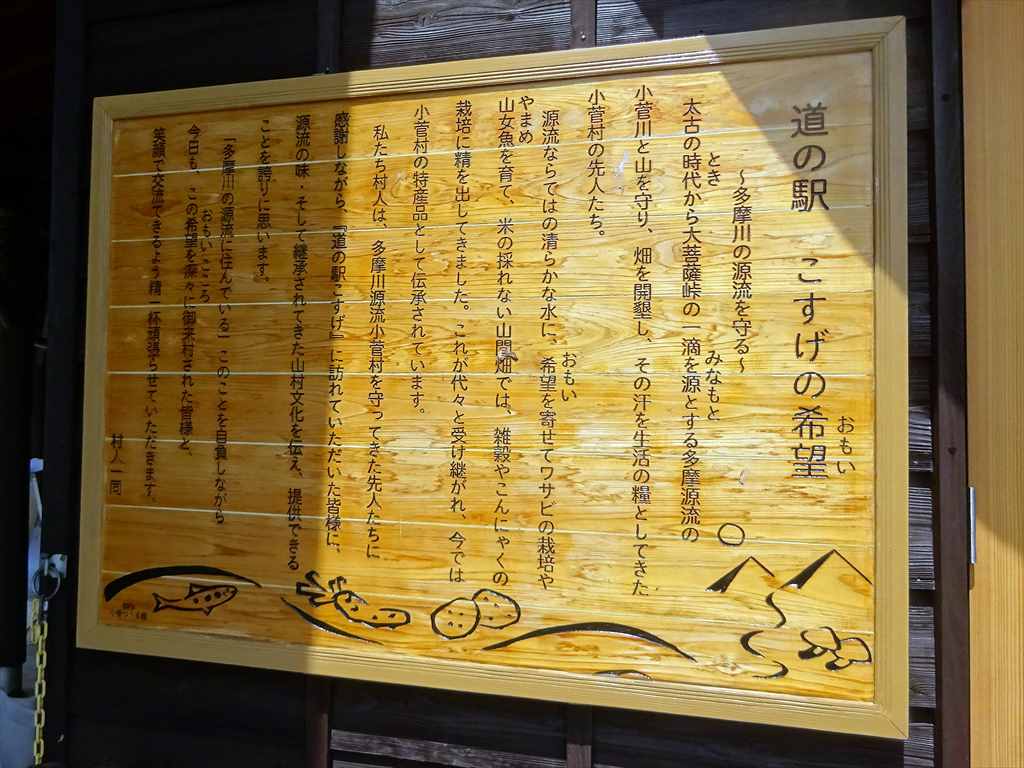 道の駅 こすげの希望
おもい
～多摩川の源流を守る～
太古の時代から大菩薩峠の一滴を源とする多摩源流の
とき みなもと
小菅川と山を守り、畑を開墾し、その汗を生活の糧としてきた
小菅村の先人たち。
源流ならではの清らかな水に、希望を寄せてワサビの栽培や
おもい
山女魚を育て、米の採れない山間畑では、雑穀やこんにゃくの
やまめ
栽培に精を出してきました。これが代々と受け継がれ、今では
小菅村の特産品として伝承されています。
私たち村人は、多摩川源流小菅村を守ってきた先人たちに
感謝しながら『道の駅こすげ』に訪れていただいた皆様に、
源流の味・そして継承されてきた山村文化を伝え、提供できる
ことを誇りに思います。
「多摩川の源流に住んでいる」このことを自負しながら
今日も、この希望を深々に御来村された皆様と、
おもい こころ
笑顔で交流できるよう精一杯頑張らせていただきます。
村人一同